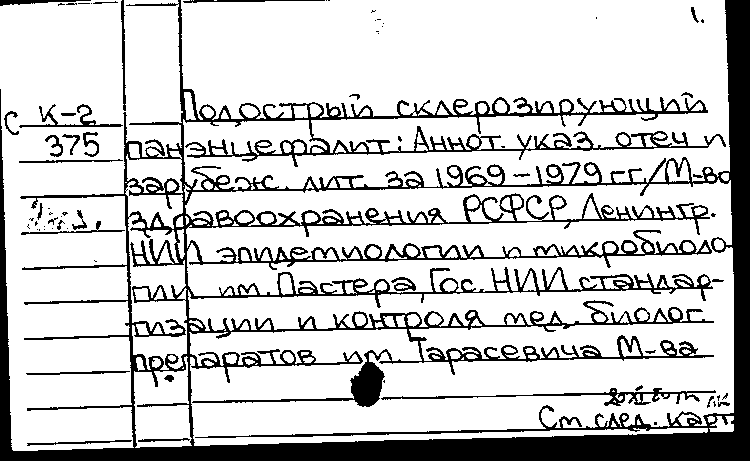 1.
С К-2
375
Подострый склерозирующий
панэнцефалит: Аннот. указ. отеч и
зарубеж. лит. за 1969-1979 гг./М-во
здравоохранения РСФСР, Ленингр.
НИИ эпидемиологии и микробиоло-
гии им. Пастера, Гос. НИИ стандар-
тизации и контроля мед. биолог.
препаратов им. Тарасевича М-ва
См. след. карт.